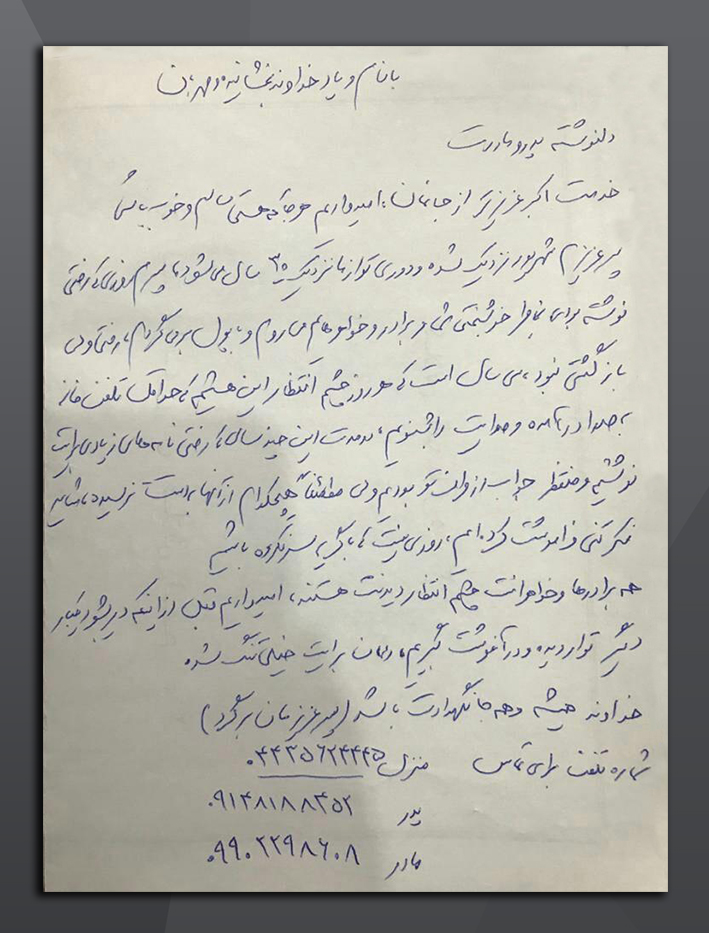 بانام و یاد خداوند بخشاینده و مهربان
دلنوشته پدر و مادرت
خدمت اکبر عزیزتر از جانمان، امیدواریم هر جا که هستی سالم و خوب باشی
پسر عزیزم شهریور نزدیک شده و دوری تو از ما نزدیک ۳۵ سال می‌شود، پسرم روزی که رفتی
نوشته بودی بخاطر خوشبختی شما و برادر و خواهرهایم می روم و با پول برمی گردم، رفتی ولی
بازگشتی نبود، سی سال است که هر روز چشم انتظار این هستیم که حداقل تلفن خانه
به صدا درآمده و صدایت را بشنویم، در مدت این چند سالی که رفتی نامه های زیادی برایت
نوشتیم و منتظر جواب از طرف تو بودیم ولی مطمئناً هیچکدام از آنها بدستت نرسیده، شاید
فکر کنی فراموشت کرده ایم، روزی نیست که با گریه سر نکرده باشیم
همه برادرها و خواهرانت چشم انتظار دیدنت هستند، امیدواریم قبل از اینکه دیر بشود یکبار
دیگر تو را دیده و در آغوشت بگیریم، دلمان برایت خیلی تنگ شده
خداوند همیشه و همه جا نگهدارت باشد (پسر عزیزمان برگرد)
شماره تلفن برای تماس منزل ۰۴۴۳۵۶۲۴۴۴۵
پدر ۰۹۱۴۸۱۸۸۴۵۲
مادر ۰۹۹۰۲۲۹۸۶۰۸